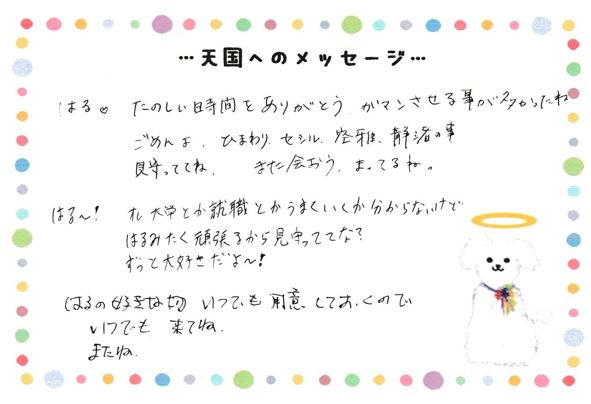 …天国へのメッセージ…
はる♡ たのしい時間をありがとう ガマンさせる事が多かったね
ごめんよ、ひまわり、セシル、 静渚の事
見守っててね、 また会おう、まってるね。
はる～! オレ大学とか就職とかうまくいくか分からないけど
はるみたく頑張るから見守っててな?
ずっと大好きだよ～!
はるの好きな物 いつでも用意しておくので
いつでも 来てね、
またね、